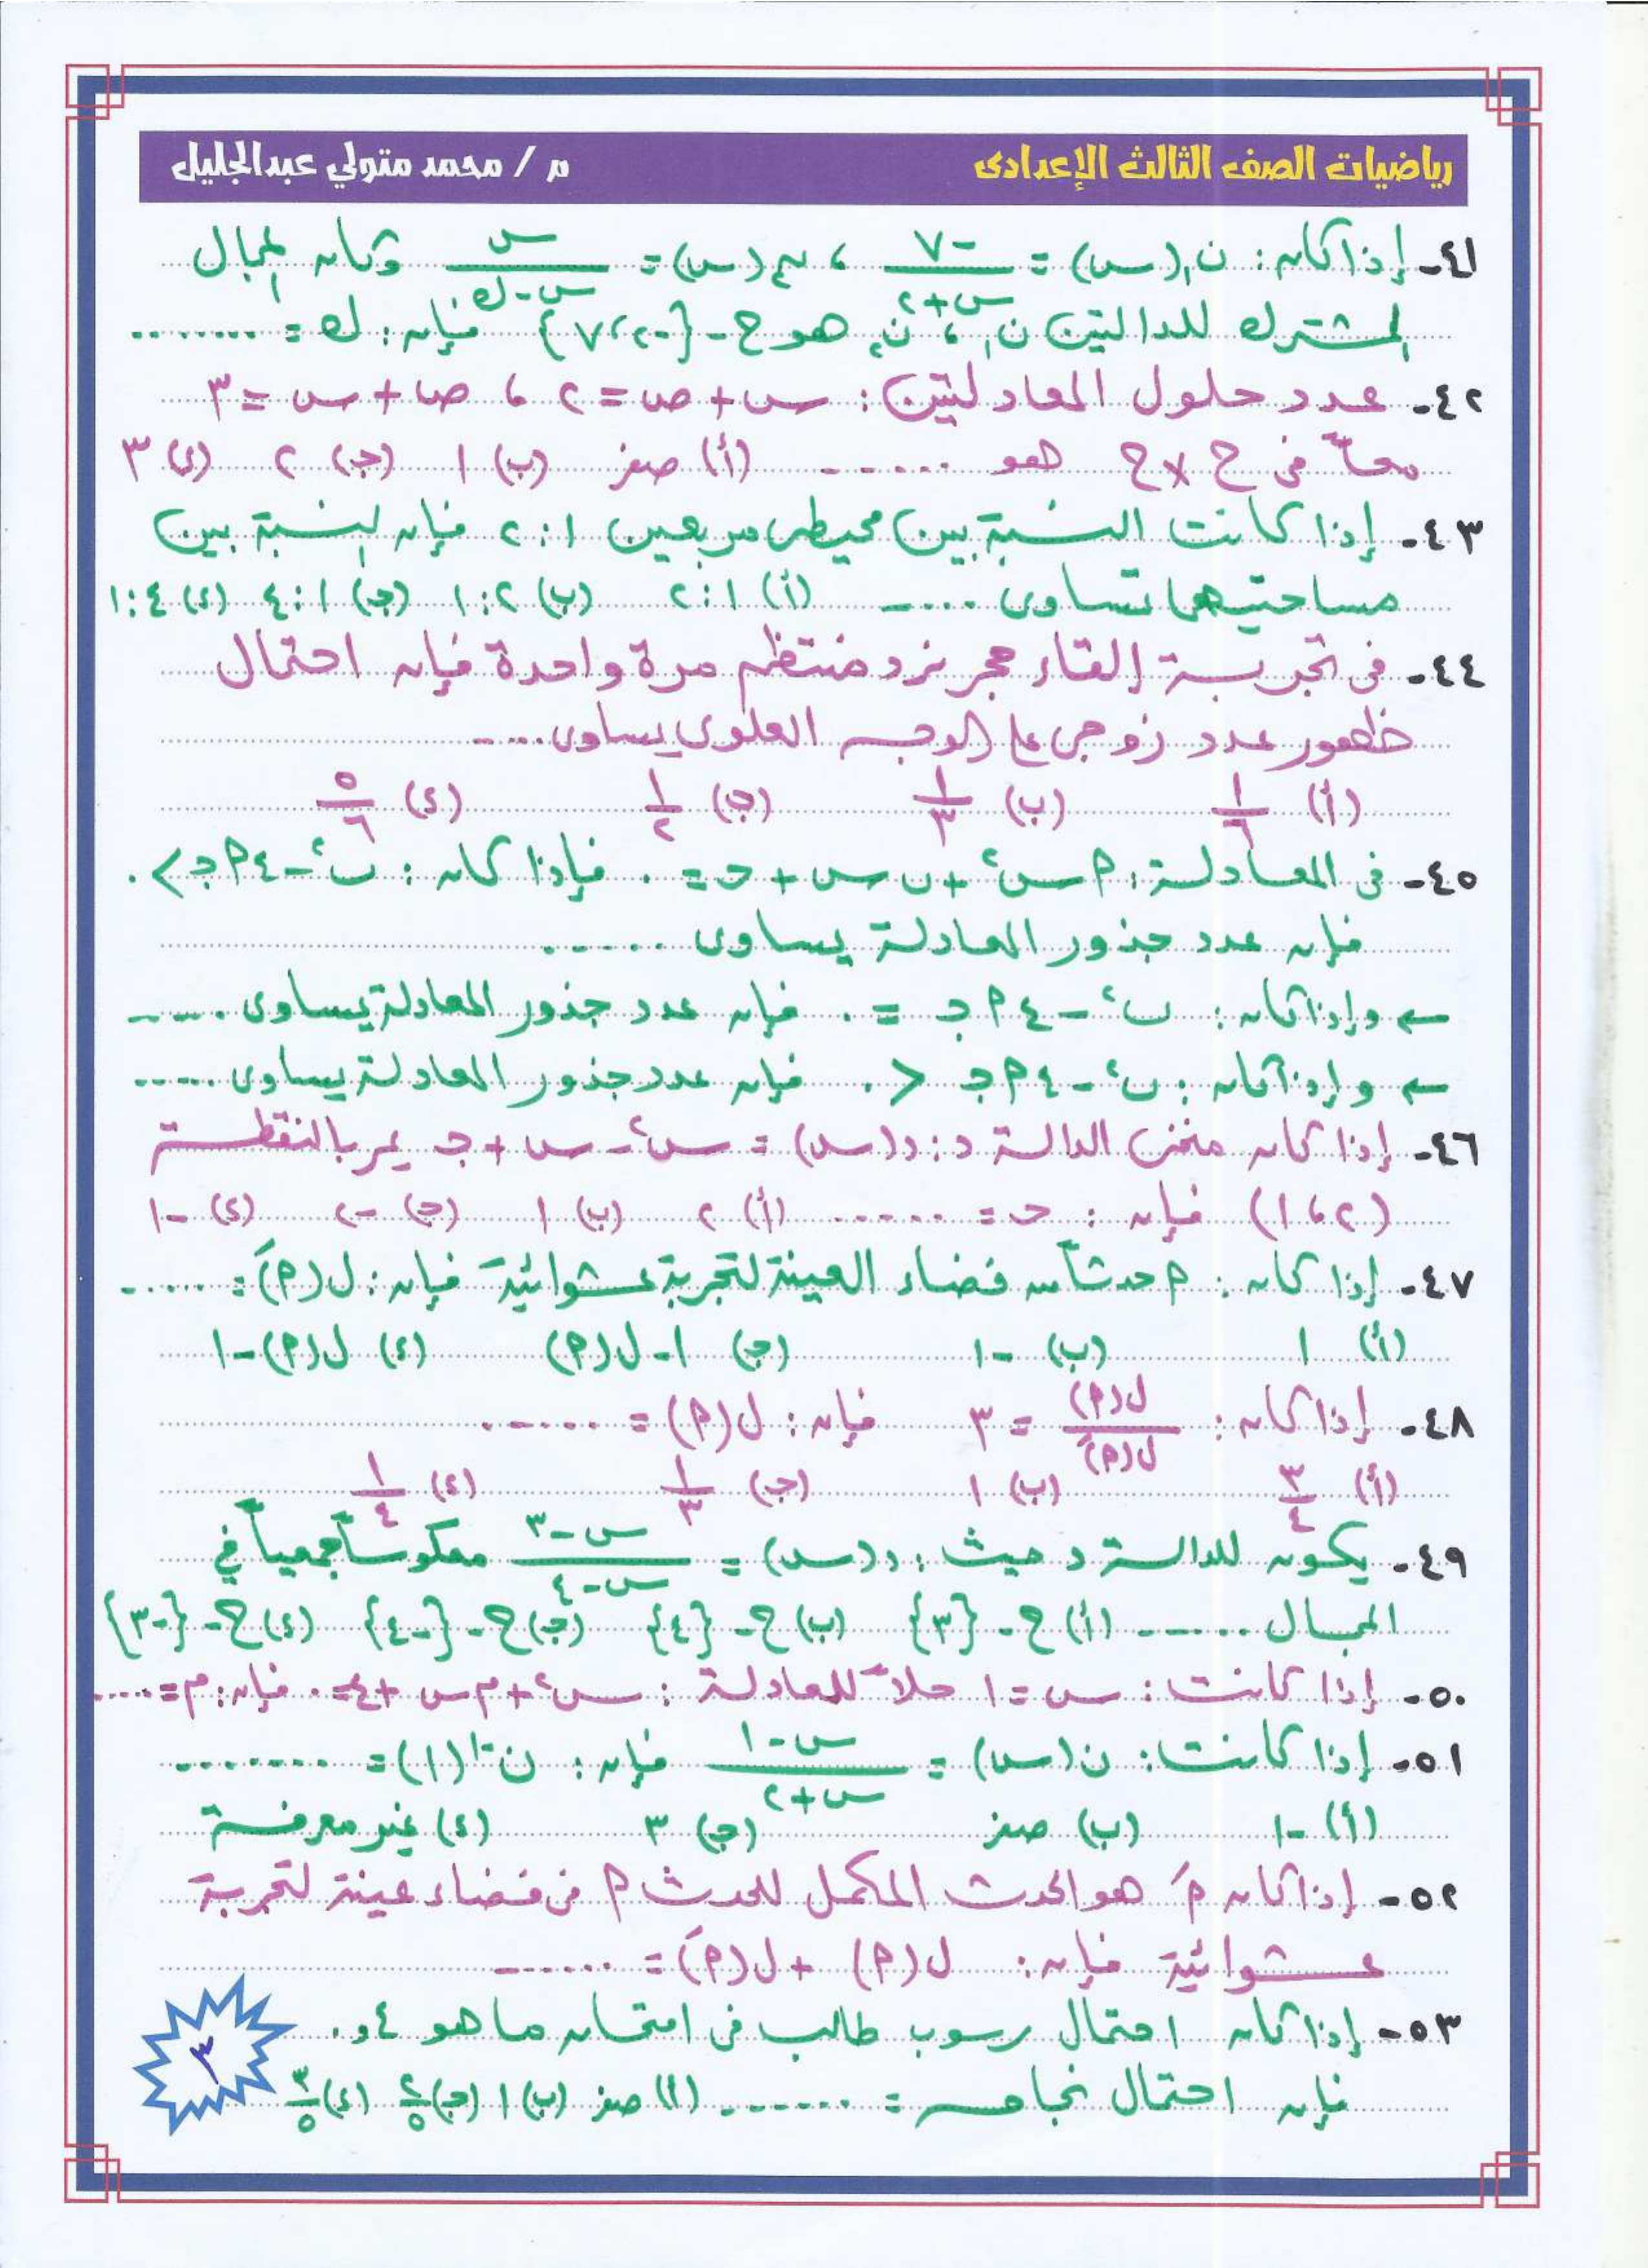 رياضيات الصف الثالث الإعدادى
م / محمد متولي عبدالجليل
٤١- إذا كان: ن١(س) = -٧/(س+٢) ، ن٢(س) = س/(س-ك) وكان المجال
المشترك للدالتين ن١ ، ن٢ هو ح - {-٢ ، ٧} فإن: ك = ........
٤٢- عدد حلول المعادلتين: س + ص = ٢ ، ص + س = ٣
معاً فى ح × ح هو ...... (أ) صفر (ب) ١ (ج) ٢ (د) ٣
٤٣- إذا كانت النسبة بين محيطى مربعين ١ : ٢ فإن النسبة بين
مساحتيهما تساوى ..... (أ) ١:٢ (ب) ٢:١ (ج) ١:٤ (د) ٤:١
٤٤- فى تجربة إلقاء حجر نرد منتظم مرة واحدة فإن احتمال
ظهور عدد زوجى على الوجه العلوى يساوى.....
(أ) ١/٦ (ب) ١/٣ (ج) ١/٢ (د) ٥/٦
٤٥- فى المعادلة: ٢ س٢ + ب س + جـ = ٠ فإذا كان: ب٢ - ٤ ٢ جـ > ٠
فإن عدد جذور المعادلة يساوى ......
← وإذا كان: ب٢ - ٤ ٢ جـ = ٠ فإن عدد جذور المعادلة يساوى .....
← وإذا كان: ب٢ - ٤ ٢ جـ < ٠ فإن عدد جذور المعادلة يساوى .....
٤٦- إذا كان منحنى الدالة د: د(س) = س٢ - س + جـ يمر بالنقطة
(٢ ، ١) فإن: جـ = ...... (أ) ٢ (ب) ١ (ج) -٢ (د) -١
٤٧- إذا كان: ٢ حدثاً من فضاء العينة لتجربة عشوائية فإن: ل(٢َ) = .....
(أ) ١ (ب) -١ (ج) ١ - ل(٢) (د) ل(٢) - ١
٤٨- إذا كان: ل(٢)/ل(٢َ) = ٣ فإن: ل(٢) = ......
(أ) ٣/٤ (ب) ١ (ج) ١/٣ (د) ١/٤
٤٩- يكون للدالة د حيث: د(س) = (س-٣)/(س-٤) معكوساً جمعياً في
المجال ...... (أ) ح - {٣} (ب) ح - {٤} (ج) ح - {-٤} (د) ح - {-٣}
٥٠- إذا كانت: س = ١ حلاً للمعادلة: س٢ + م س + ٤ = ٠ فإن: م = ....
٥١- إذا كانت: ن(س) = (س-١)/(س+٢) فإن: ن-١(١) = ........
(أ) -١ (ب) صفر (ج) ٣ (د) غير معرفة
٥٢- إذا كان ٢َ هو الحدث المكمل للحدث ٢ فى فضاء عينة لتجربة
عشوائية فإن: ل(٢) + ل(٢َ) = ......
٥٣- إذا كان احتمال رسوب طالب فى امتحان ما هو ٤و٠
فإن احتمال نجاحه = ...... (أ) صفر (ب) ١ (ج) ٢/٥ (د) ٣/٥
٣